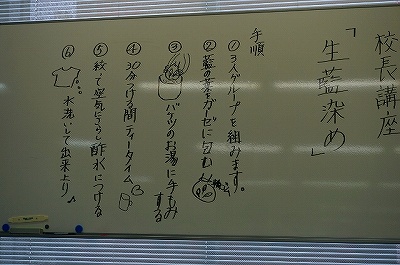 校長講座
「生藍染め」
手順
①3人グループを組みます。
②藍の葉をガーゼに包む
③バケツのお湯に手もみする
④30分つける間ティータイム
⑤絞って空気にさらし酢水につける
⑥水洗いして出来上り♪